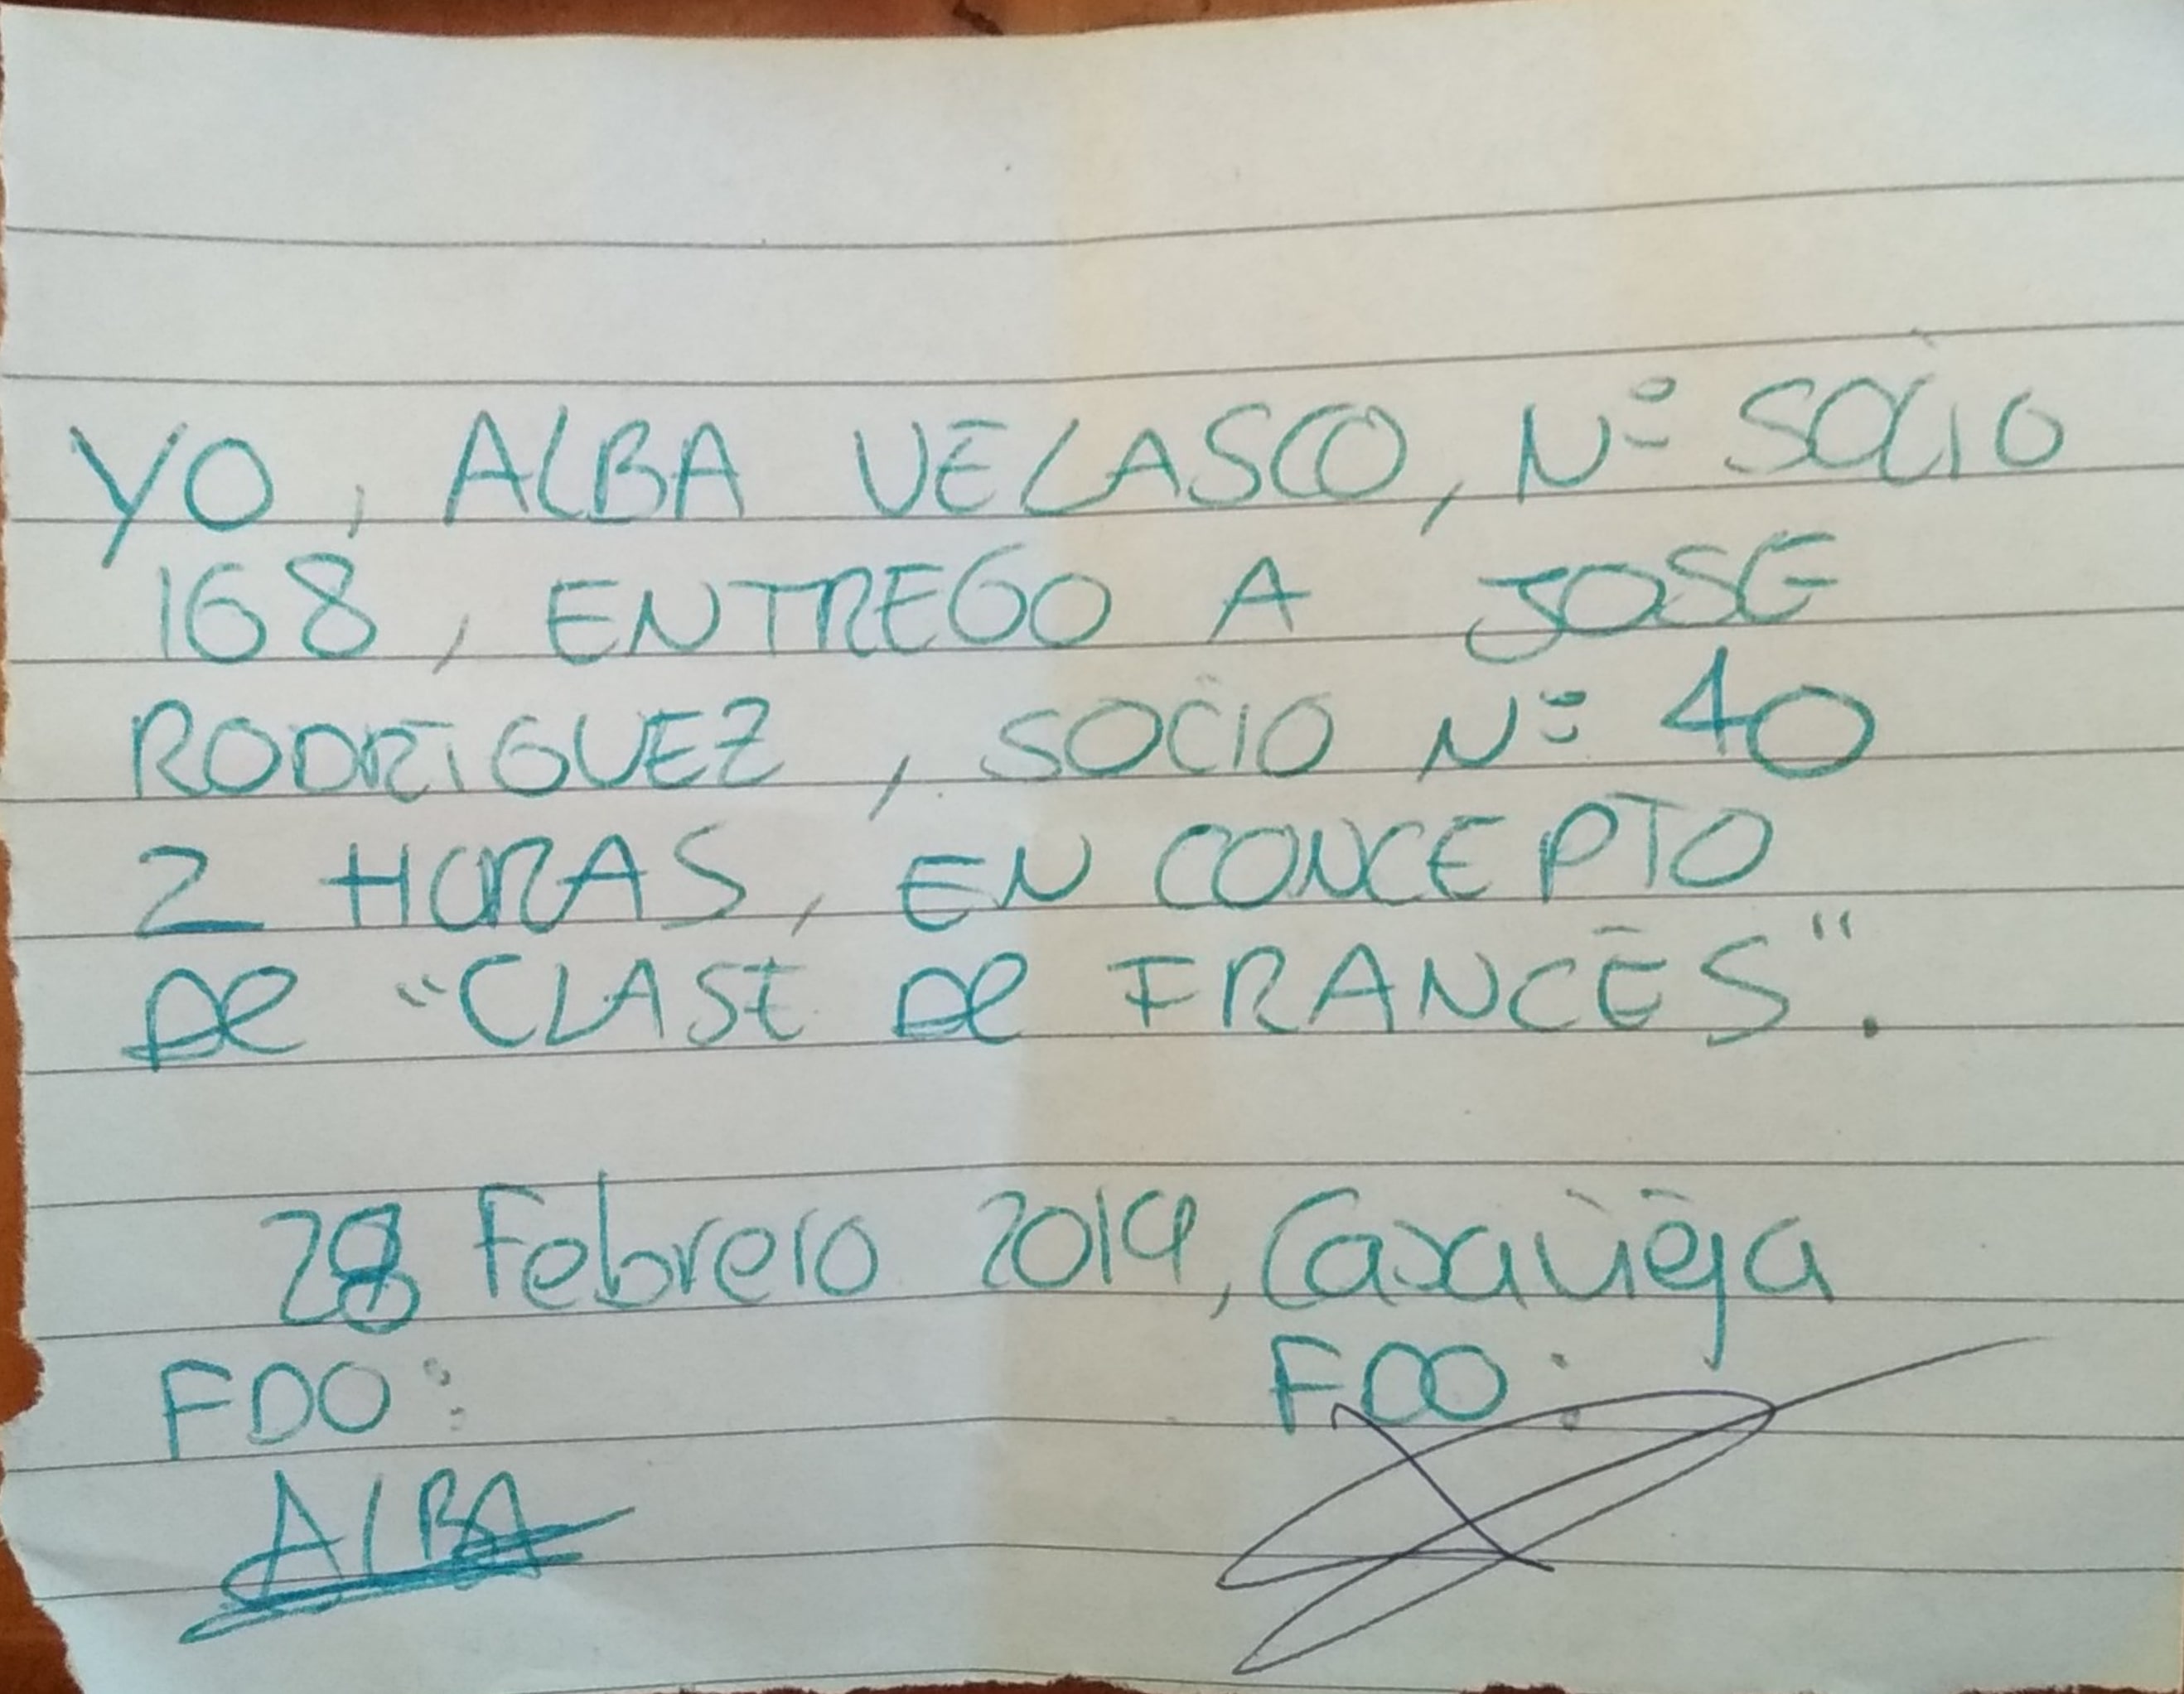 YO, ALBA VELASCO, Nº SOCIO
168, ENTREGO A JOSE
RODRÍGUEZ, SOCIO Nº 40
2 HORAS, EN CONCEPTO
De "CLASE De FRANCÉS".
28 Febrero 2019, Caxavieja
FDO: FDO:
ALBA